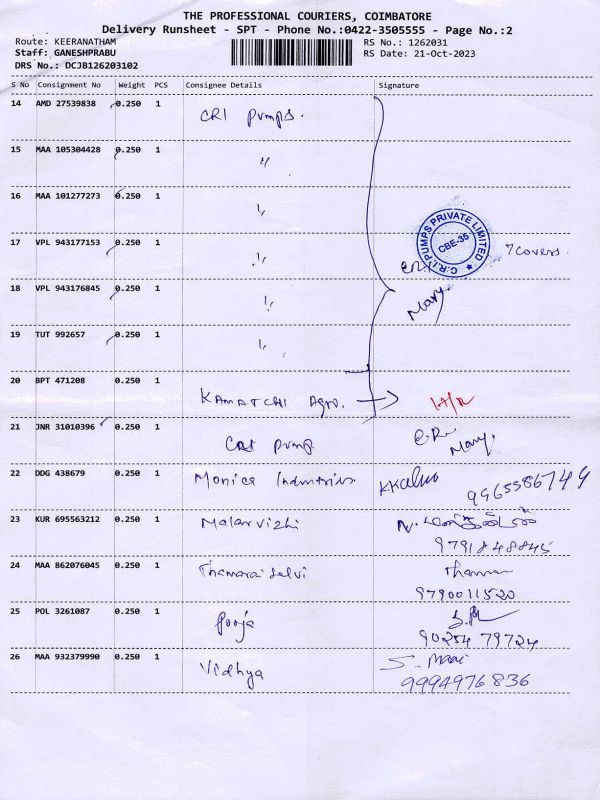 THE PROFESSIONAL COURIERS, COIMBATORE
Delivery Runsheet - SPT - Phone No.:0422-3505555 - Page No.:2
Route: KEERANATHAM RS No.: 1262031
Staff: GANESHPRABU RS Date: 21-Oct-2023
DRS No.: DCJB126203102
S No Consignment No Weight PCS Consignee Details Signature
14 AMD 27539838 0.250 1 CRI Pumps.
15 MAA 105304428 0.250 1 "
16 MAA 101277273 0.250 1 "
17 VPL 943177153 0.250 1 "
C.R.I PUMPS PRIVATE LIMITED ★ CBE-35
7 Covers
18 VPL 943176845 0.250 1 "
Mary.
19 TUT 992657 0.250 1 "
20 BPT 471208 0.250 1 KAMATCHI Agro.
21 JNR 31010396 0.250 1 CRI Pump.
Mary.
22 DDG 438679 0.250 1 Monica Industries
9965586749
23 KUR 695563212 0.250 1 Malarvizhi
9791848845
24 MAA 862076045 0.250 1 Thamarai Selvi
9790011520
25 POL 3261087 0.250 1 Pooja
90254 79724
26 MAA 932379990 0.250 1 Vidhya
9994976836